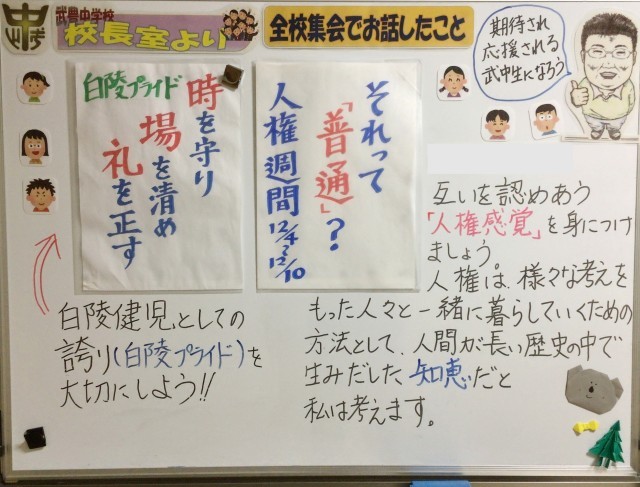 武豊中学校
校長室より
全校集会でお話したこと
期待され
応援される
武中生になろう
白陵プライド
時を守り
場を清め
礼を正す
それって
「普通」?
人権週間
12/4~12/10
互いを認めあう
「人権感覚」を身につけ
ましょう。
人権は、様々な考えを
もった人々と一緒に暮らしていくための
方法として、人間が長い歴史の中で
生みだした、知恵だと
私は考えます。
白陵健児としての
誇り(白陵プライド)を
大切にしよう!!